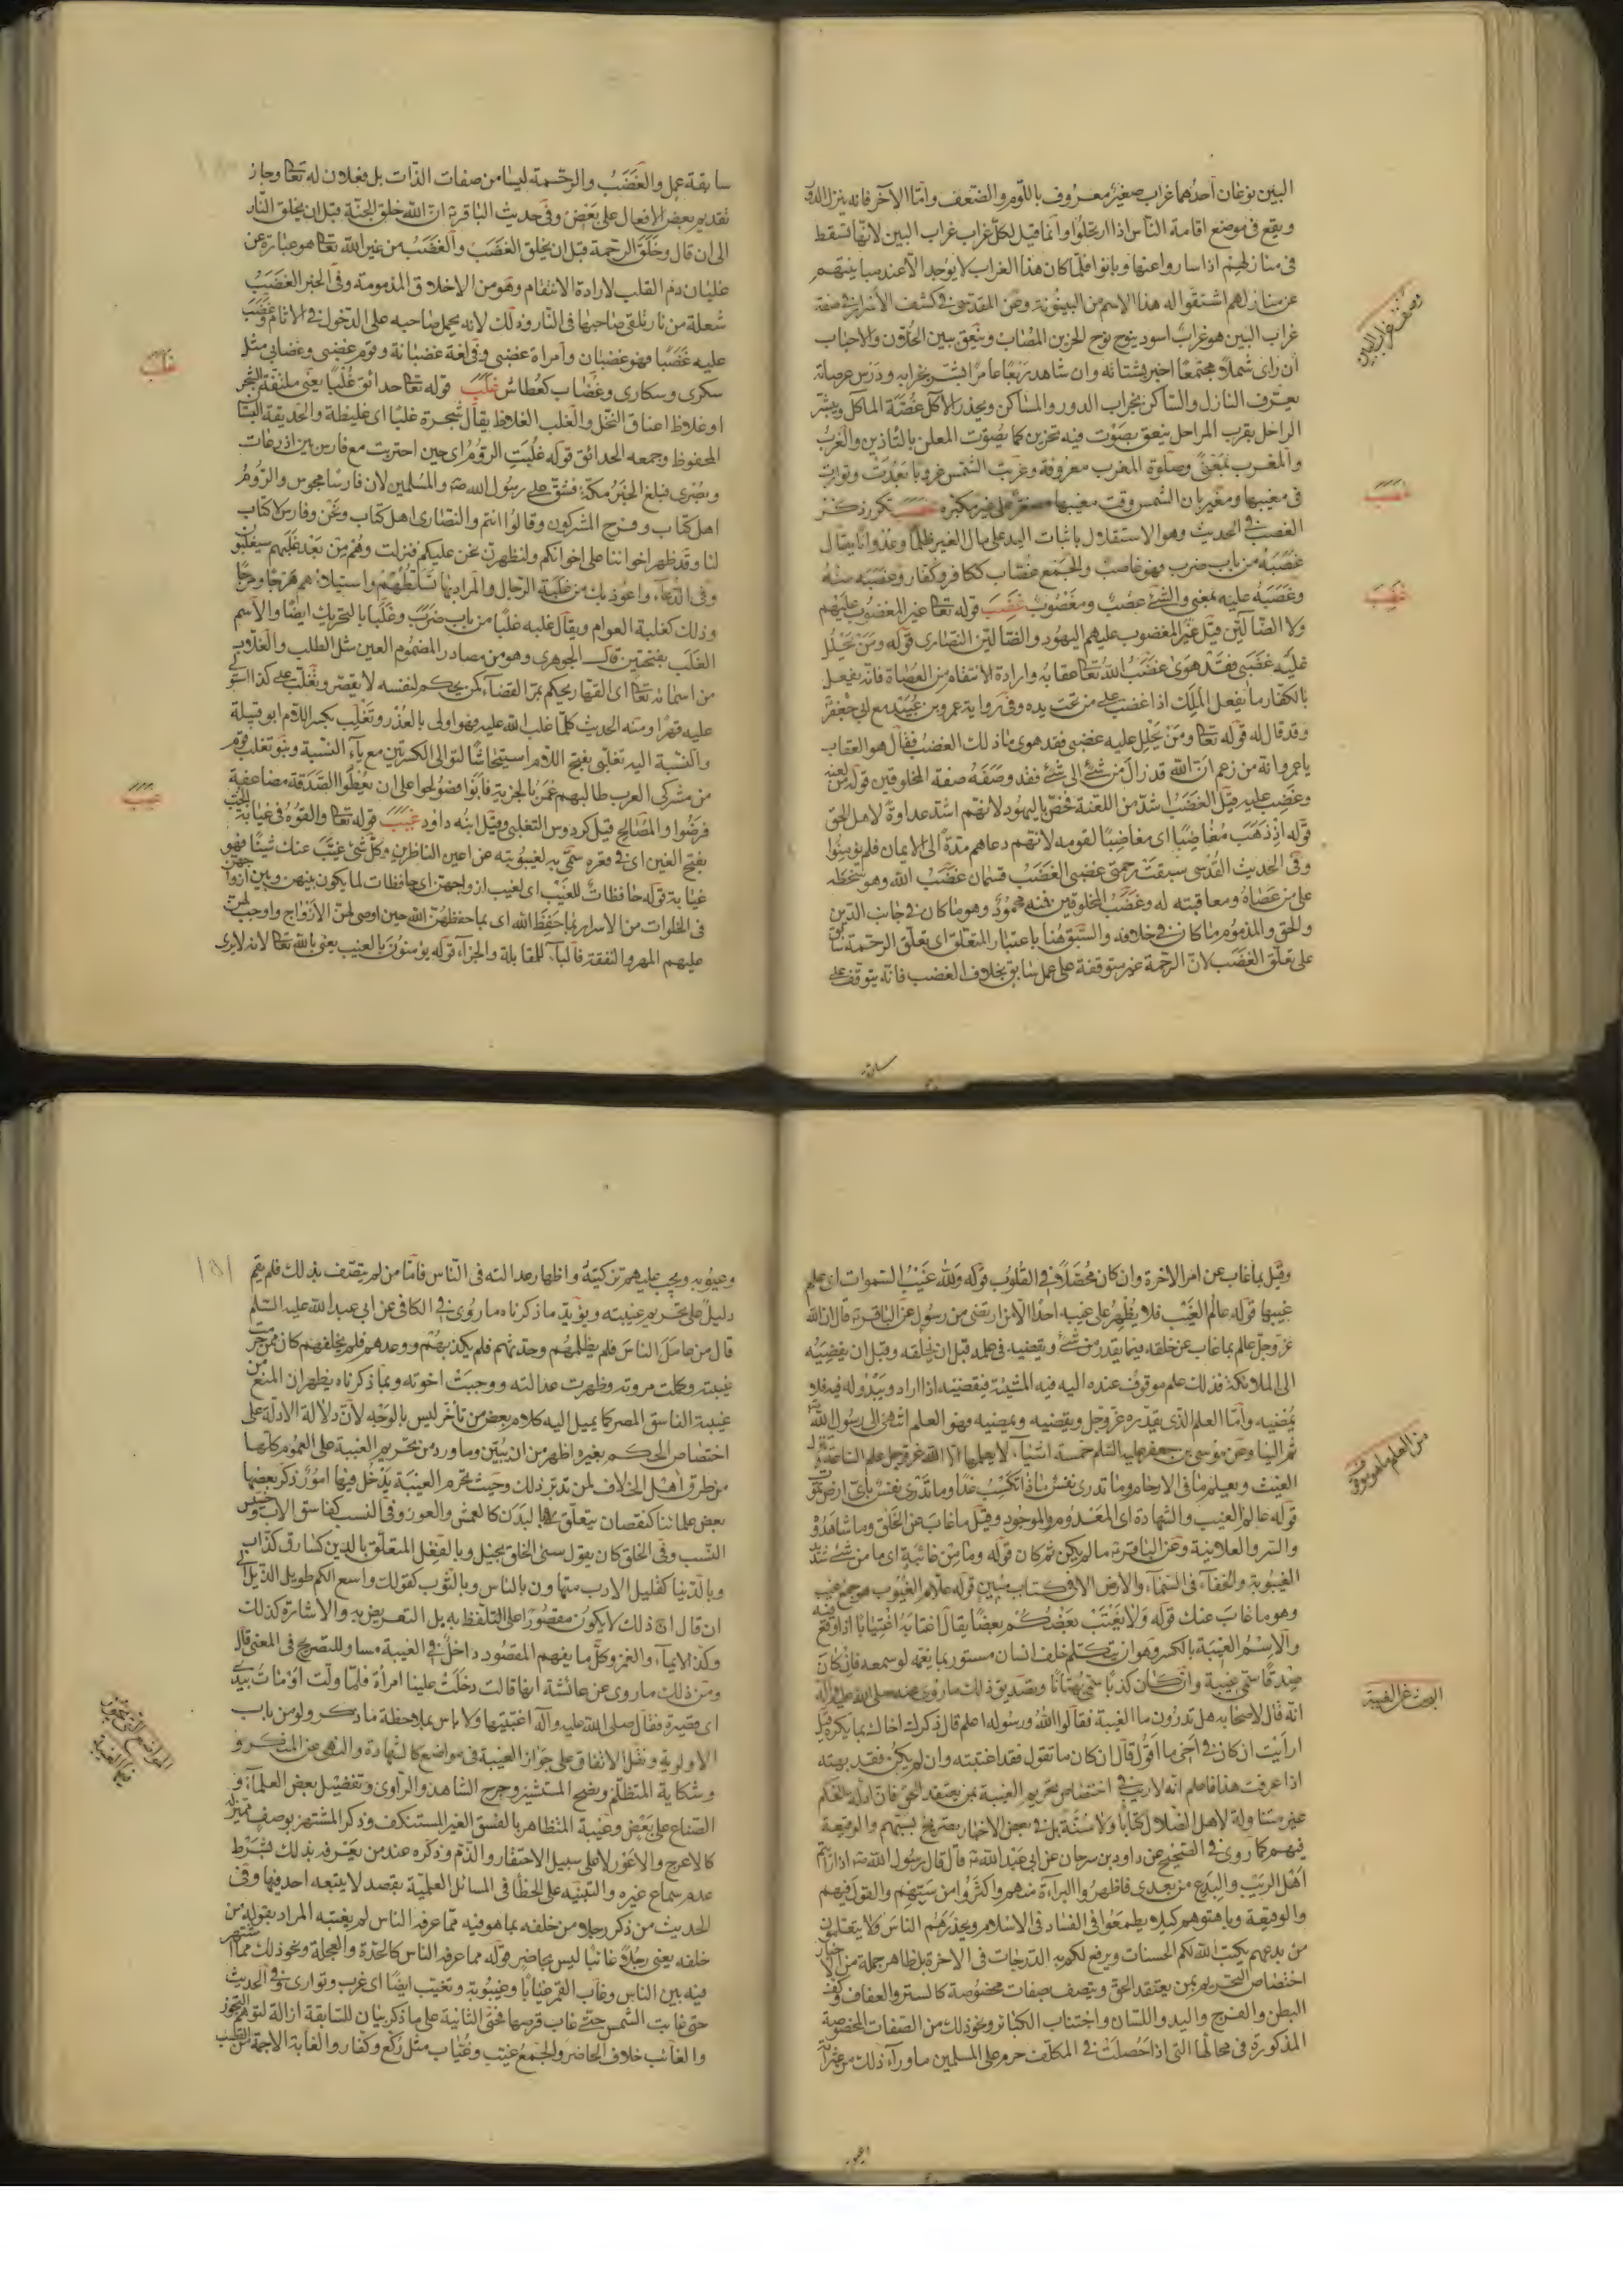 البين نوعان أحدهما غراب صغير معروف باللؤم والضعف وأما الآخر فانه ينزل الدور
ويقع في موضع اقامة الناس اذا ارتحلوا وانما قيل لكل غراب غراب البين لأنها تسقط
في منازلهم اذا ساروا عنها وبانوا فلما كان هذا الغراب لا يوجد الا عند مباينتهم
عن منازلهم اشتقوا له هذا الاسم من البينونة وعن المقدسي في كشف الأسرار في صفة
غراب البين هو غراب اسود ينوح نوح الحزين المصاب وينعق بين الخلان والاحباب
ان رأى شملا مجتمعا اخبر بشتاته وان شاهد ربعا عامرا بشر بخرابه ودرس عرصاته
يعرف النازل والساكن بخراب الدور والمساكن ويحذر الآكل غصة المآكل ويبشر
الراحل بقرب المراحل ينعق بصوت فيه تحزين كما يصوت المعلن بالتأذين والغرب
والمغرب بمعنى وصلوة المغرب معروفة وغربت الشمس غروبا بعدت وتوارت
في مغيبها ومغيربان الشمس وقت مغيبها مصغر على غير مكبره غصب تكرر ذكر
الغصب في الحديث وهو الاستقلال باثبات اليد على مال الغير ظلما وعدوانا يقال
غصبه من باب ضرب فهو غاصب والجمع غصاب ككافر وكفار وغصبه منه
وغصبه عليه بمعنى والشئ غصب ومغصوب غضب قوله تعا غير المغضوب عليهم
ولا الضالين قيل غير المغضوب عليهم اليهود والضالين النصارى قوله ومن يحلل
عليه غضبي فقد هوى غضب الله تعا عقابه وارادة الانتقام من العصاة فانه يفعل
بالكفار ما يفعل الملك اذا غضب على من تحت يده وفي رواية عمرو بن عبيد مع ابي جعفر
وقد قال له قوله تعا ومن يحلل عليه غضبي فقد هوى ما ذلك الغضب فقال هو العقاب
يا عمرو انه من زعم ان الله قد زال من شئ الى شئ فقد وصفه صفة المخلوقين قوله لعنه
وغضب عليه قيل الغضب اشد من اللعنة فخص باليهود لأنهم اشد عداوة لاهل الحق
قوله اذ ذهب مغاضبا اى مغاضبا لقومه لانهم دعاهم مدة الى الايمان فلم يؤمنوا
وفي الحديث القدسي سبقت رحمتي غضبي الغضب قسمان غضب الله وهو سخطه
على من عصاه ومعاقبته له وغضب المخلوقين فمنه محمود وهو ما كان في جانب الدين
والحق والمذموم ما كان في خلافه والسبق هنا باعتبار المتعلق اى تعلق الرحمة سابق
على تعلق الغضب لان الرحمة غير متوقفة على عمل سابق بخلاف الغضب فانه يتوقف على
سابقة
وصف غراب البين
غصب
غضب
سابقة عمل والغضب والرحمة ليسا من صفات الذات بل فعلان له تعا وجاز
تقديم بعض الافعال على بعض وفي حديث الباقر ان الله خلق الجنة قبل ان يخلق النار
الى ان قال وخلق الرحمة قبل ان يخلق الغضب والغضب من غير الله تعا هو عبارة عن
غليان دم القلب لارادة الانتقام وهو من الاخلاق المذمومة وفي الخبر الغضب
شعلة من نار تلقى صاحبها في النار وذلك لانه يحمل صاحبه على الدخول في الآثام وغضب
عليه غضبا فهو غضبان وامراة غضبى وفي لغة غضبانة وقوم غضبى وغضابى مثل
سكرى وسكارى وغضاب كعطاش غلب قوله تعا حدائق غلبا يعني ملتفة الشجر
او غلاظ اعناق النخل والغلب الغلاظ يقال شجرة غلبا اى غليظة والحديقة البستا
المحفوظ وجمعه الحدائق قوله غلبت الروم اى حين احتربت مع فارس بين اذرعات
وبصرى فبلغ الخبر مكة فشق على رسول الله ص والمسلمين لان فارسا مجوس والروم
اهل كتاب وفرح المشركون وقالوا انتم والنصارى اهل كتاب ونحن وفارس لا كتاب
لنا وقد ظهر اخواننا على اخوانكم ولنظهرن نحن عليكم فنزلت وهم من بعد غلبهم سيغلبون
وفي الدعاء واعوذ بك من غلبة الرجال والمراد بها تسلطهم واستيلاؤهم هرجا ومرجا
وذلك كغلبة العوام ويقال غلبه غلبا من باب ضرب وغلبا بالتحريك ايضا والاسم
الغلب بفتحتين قال الجوهري وهو من مصادر المضموم العين مثل الطلب والغلاب
من اسمائه تعا اى القهار يحكم بمر القضاء كمن يحكم لنفسه لا يقصر وتغلب على كذا استولى
عليه قهرا ومنه الحديث كلما غلب الله عليه فهو اولى بالعذر وتغلب بكسر اللام ابو قبيلة
والنسبة اليه تغلبي بفتح اللام استيحاشا لتوالى الكسرتين مع ياء النسبة وبنو تغلب قوم
من مشركى العرب طالبهم عمر بالجزية فأبوا فصولحوا على ان يعطوا الصدقة مضاعفة
فرضوا والمصالح قيل كردوس التغلبي وقيل ابنه داود غيب قوله تعا والقوه في غيابة الجب
بفتح الغين اى في قعره سمى به لغيبوبته عن اعين الناظرين وكل شئ غيب عنك شيئا فهو
غيابة قوله حافظات للغيب اى لغيب ازواجهن اى حافظات لما يكون بينهن وبين ازواجهن
في الخلوات من الأسرار بما حفظ الله اى بما حفظهن الله حين اوصى لهن الازواج واوجب لهن
عليهم المهر والنفقة فالباء للمقابلة والجزاء قوله يؤمنون بالغيب يعنى بالله تعا لانه لا يرى
غلب
غيب
وقيل بما غاب عن امر الاخرة وان كان محصلا في القلوب قوله ولله غيب السموات اى علم
غيبها قوله عالم الغيب فلا يظهر على غيبه احدا الا من ارتضى من رسول عن الباقر قال ان الله
عز وجل عالم بما غاب عن خلقه فيما يقدر من شئ ويقضيه في علمه قبل ان يخلقه وقبل ان يقضيه
الى الملائكة فذلك علم موقوف عنده اليه فيه المشيئة فيقضيه اذا اراد ويبدو له فيه فلا
يمضيه وأما العلم الذى يقدره عز وجل ويقضيه ويمضيه فهو العلم انتهى الى رسول الله
ثم الينا وعن موسى بن جعفر عليه السلم خمسة اشياء لا يعلمها الا الله عز وجل علم الساعة وينزل
الغيث ويعلم ما في الارحام وما تدرى نفس ماذا تكسب غدا وما تدرى نفس بأى ارض تموت
قوله عالم الغيب والشهادة اى المعدوم والموجود وقيل ما غاب عن الخلق وما شاهدوه
والسر والعلانية وعن الباقر ما لم يكن ثم كان قوله وما من غائبة اى ما من شئ شديد
الغيبوبة والخفاء في السماء والارض الا في كتاب مبين قوله علام الغيوب هو جمع غيب
وهو ما غاب عنك قوله ولا يغتب بعضكم بعضا يقال اغتابه اغتيابا اذا وقع فيه
والاسم الغيبة بالكسر وهو ان يتكلم خلف انسان مستور بما يغمه لو سمعه فان كان
صدقا سمى غيبة وان كان كذبا سمى بهتانا وتصديق ذلك ما روى عنه صلى الله عليه وآله
انه قال لاصحابه هل تدرون ما الغيبة فقالوا الله ورسوله اعلم قال ذكرك اخاك بما يكره قيل
ارأيت ان كان في اخى ما اقول قال ان كان ما تقول فقد اغتبته وان لم يكن فقد بهته
اذا عرفت هذا فاعلم انه لا ريب في اختصاص تحريم الغيبة بمن يعتقد الحق فان ادلة الحكم
غير متناولة لاهل الضلال كتابا ولا سنة بل في بعض الاخبار تصريح بسبهم والوقيعة
فيهم كما روى في الصحيح عن داود بن سرحان عن ابي عبد الله قال قال رسول الله ص اذا رأيتم
اهل الريب والبدع من بعدى فاظهروا البراءة منهم واكثروا من سبهم والقول فيهم
والوقيعة وباهتوهم كيلا يطمعوا في الفساد في الاسلام ويحذرهم الناس ولا يتعلمون
من بدعهم يكتب الله لكم الحسنات ويرفع لكم به الدرجات في الاخرة بل ظاهر جملة من الاخبار
اختصاص التحريم بمن يعتقد الحق ويتصف بصفات مخصوصة كالستر والعفاف وكف
البطن والفرج واليد واللسان واجتناب الكبائر ونحو ذلك من الصفات المخصوصة
المذكورة في محالها التى اذا حصلت في المكلف حرم على المسلمين ما وراء ذلك من عثراته
من العلم ما هو موقوف
البحث عن الغيبة
وعيوبه ويجب عليهم تزكيته واظهار عدالته في الناس فاما من لم يتصف بذلك فلم يقم
دليل على تحريم غيبته ويؤيد ما ذكرناه ما روى في الكافي عن ابى عبد الله عليه السلم
قال من عامل الناس فلم يظلمهم وحدثهم فلم يكذبهم ووعدهم فلم يخلفهم كان ممن حرمت
غيبته وكملت مروته وظهرت عدالته ووجبت اخوته وبما ذكرناه يظهر ان المنع من
غيبة الفاسق المصر كما يميل اليه كلام بعض من تأخر ليس بالوجه لأن دلالة الادلة على
اختصاص الحكم بغيره اظهر من ان يبين وما ورد من تحريم الغيبة على العموم كلها
من طرق اهل الخلاف لمن تدبر ذلك وحيث تحرم الغيبة يدخل فيها امور ذكر بعضها
بعض علمائنا كنقصان يتعلق بالبدن كالعمش والعور وفي النسب كفاسق الاب وخسيس
النسب وفي الخلق كان يقول سئ الخلق بخيل وبالفعل المتعلق بالدين كسارق كذاب
وبالدنيا كقليل الادب متهاون بالناس وبالثوب كقولك واسع الكم طويل الذيل الى
ان قال ان ذلك لا يكون مقصورا على التلفظ به بل التعريض به والاشارة كذلك
وكذا الايماء والغمز وكل ما يفهم المقصود داخل في الغيبة مساو للتصريح في المعنى قال
ومن ذلك ما روى عن عائشة انها قالت دخلت علينا امرأة فلما ولت اومأت بيدى
اى قصيرة فقال صلى الله عليه وآله اغتبتيها ولا باس بملاحظة ما ذكر ولو من باب
الاولوية ونقل الاتفاق على جواز الغيبة في مواضع كالشهادة والنهى عن المنكر و
وشكاية المتظلم ونصح المستشير وجرح الشاهد والراوى وتفضيل بعض العلماء و
الصناع على بعض وغيبة المتظاهر بالفسق الغير المستنكف وذكر المشتهر بوصف مميز له
كالاعرج والاعور لا على سبيل الاحتقار والذم وذكره عند من يعرفه بذلك بشرط
عدم سماع غيره والتنبيه على الخطأ في المسائل العلمية بقصد لا يتبعه احد فيها وفي
الحديث من ذكر رجلا من خلفه بما هو فيه مما عرفه الناس لم يغتبه المراد بقوله من
خلفه يعنى رجلا غائبا ليس بحاضر قوله مما عرفه الناس كالحدة والعجلة ونحو ذلك مما اشتهر
فيه بين الناس وغاب القمر غيابا وغيبوبة وتغيب ايضا اى غرب وتوارى وفي الحديث
حتى غابت الشمس حتى غاب قرصها فحتى الثانية على ما ذكر بيان للسابقة ازالة لتوهم التجوز
والغائب خلاف الحاضر والجمع غيب وغياب مثل ركع وكفار والغابة الاجمة من القصب
المواضع التى تجوز فيها الغيبة
١٥١